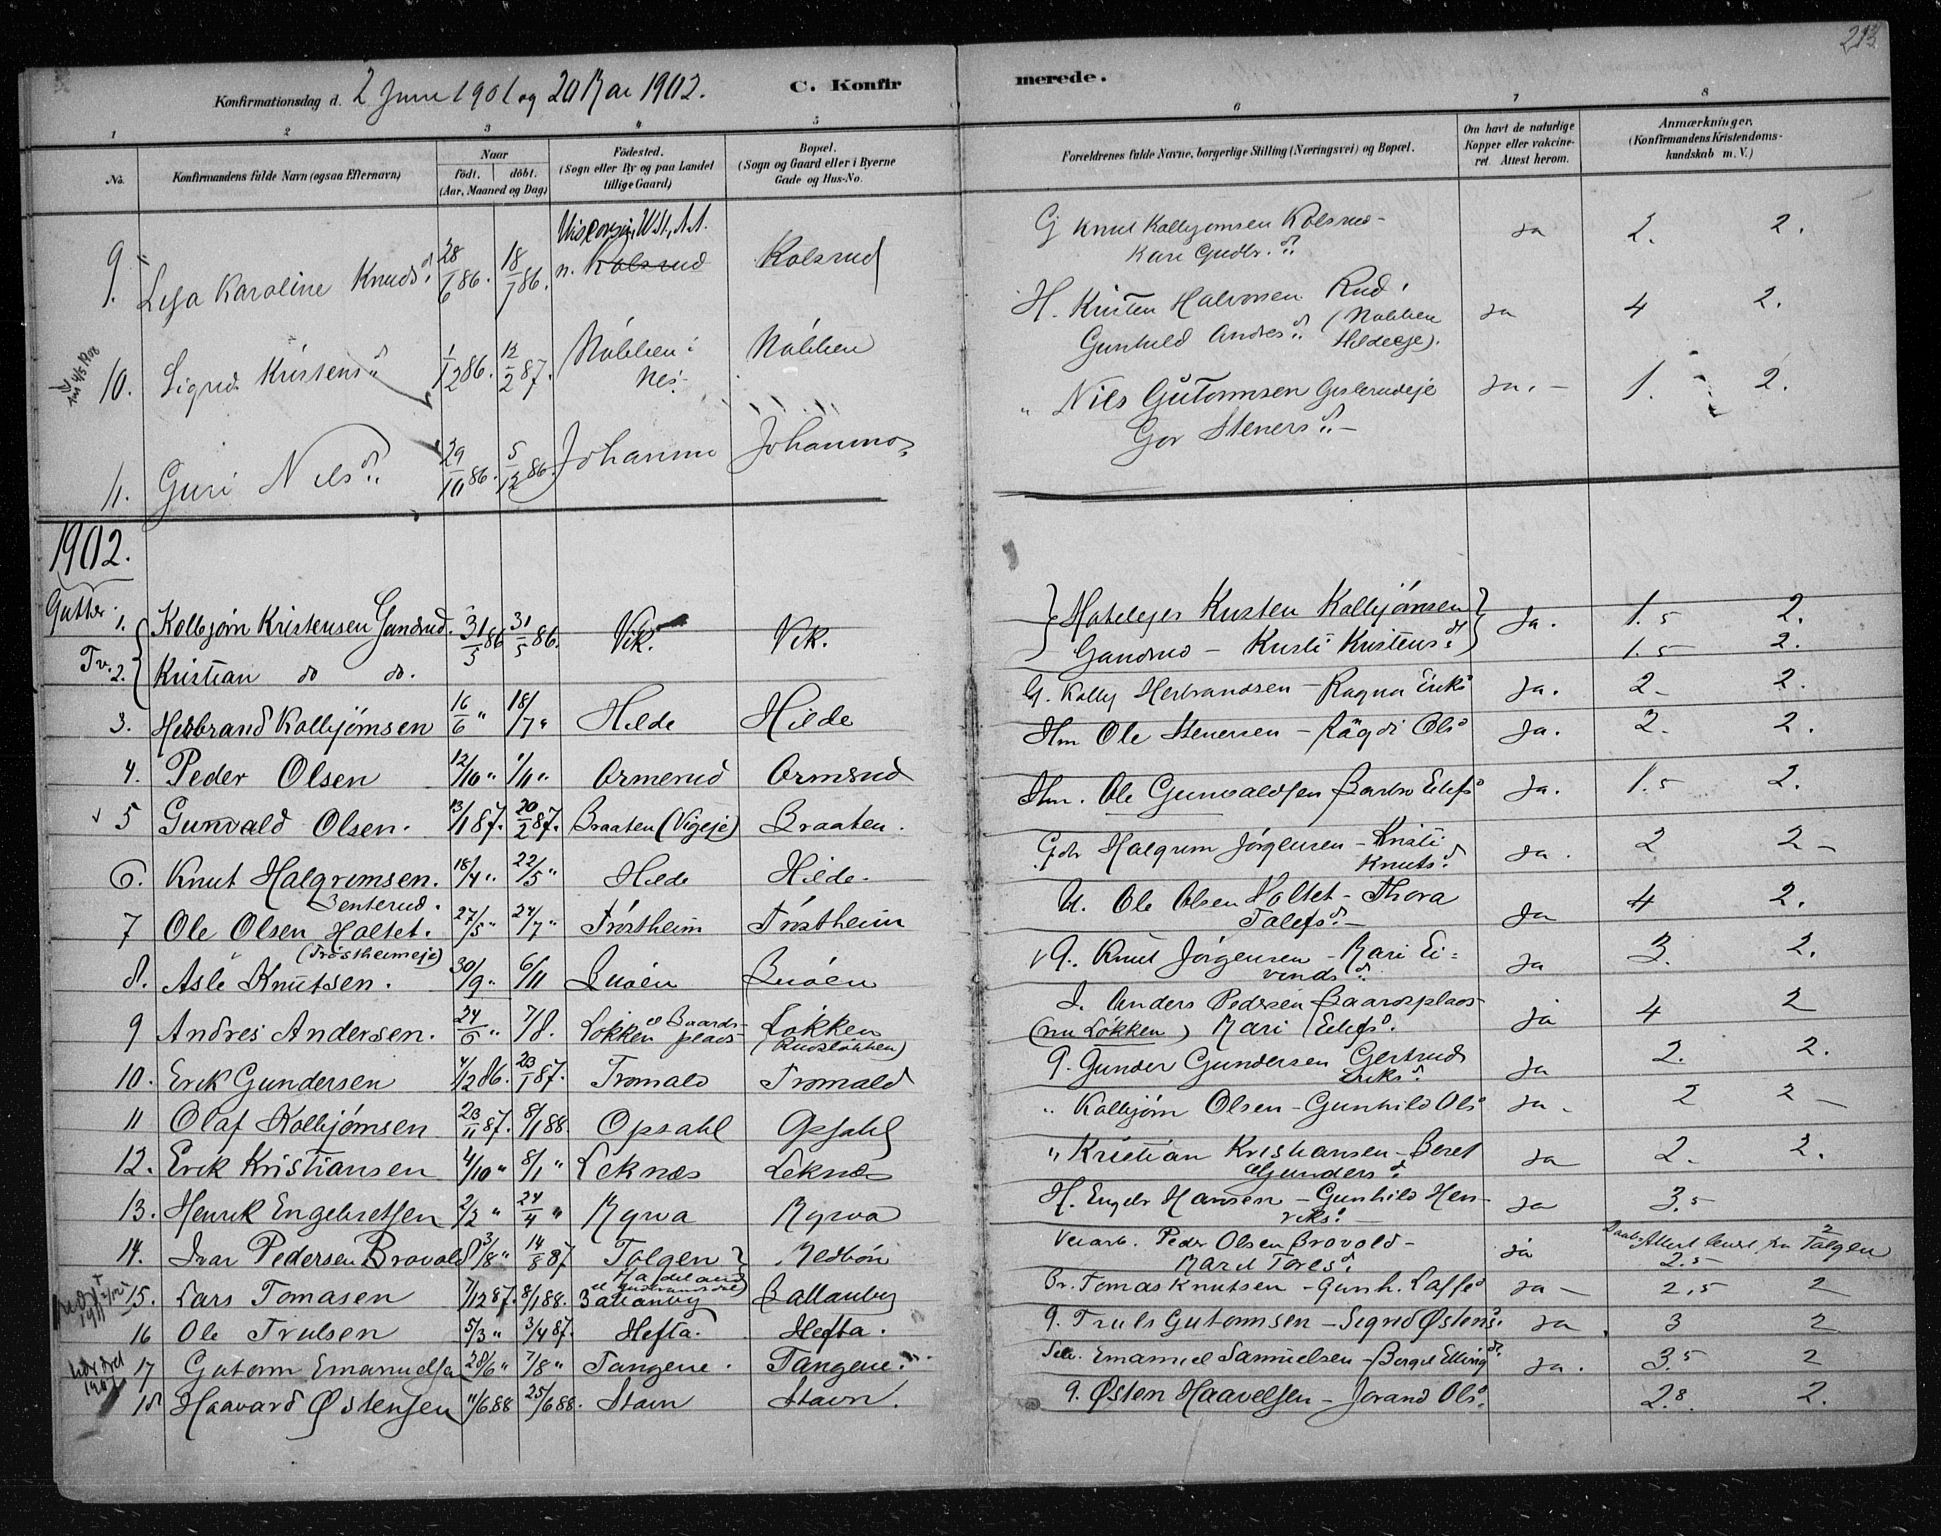 213
Konfirmationsdag d. 2 Juni 1901 og 20 Mai 1902. C. Konfirmerede.
1 2 3 4 5 6 7 8
No. Konfirmandens fulde Navn (ogsaa Efternavn) Naar født. døbt. (Aar, Maaned og Dag) Fødested. (Sogn eller By og paa Landet tillige Gaard) Bopæl. (Sogn og Gaard eller i Byerne Gade og Hus-No. Forældrenes fulde Navne, borgerlige Stilling (Næringsvei) og Bopæl. Om havt de naturlige Kopper eller vakcineret. Attest herom. Anmærkninger. (Konfirmandens Kristendomskundskab m. V.)
9. Karoline Knuds d. 28/6 86. 18/7 86. n. Kolsrud Kolsrud G Knut Kolbjørnsen Kolsrud - Kari Gudbr. d. ja 2. 2.
10. Sigrid Kristens d. 1/12 86. 12/2 87. Nøbben i Nes. Nøbben H. Kristen Halvorsen Rud, Gunhild Andrs d. (Nøbben Hildeeje). ja 4 2.
11. Guri Nils d. 29/10 86. 5/12 86. Johanmo Johanmo Nils Gutormsen Gislerudeje Gor Steners d. - ja. - 1. 2.
1902.
Gutter.
1. Kolbjørn Kristensen Gandrud. 31/5 86 31/5 86. Vik. Vik. Hotelejer Kristen Kolbjørnsen Ja. 1.5 2.
Tv. 2. Kristian do do. Gandrud - Kristi Kristens d. 1.5 2.
3. Herbrand Kolbjørnsen 16/6 " 18/7 " Hilde Hilde G. Kolbj Herbrandsen - Ragna Eriks d Ja. 2 - 2.
4. Peder Olsen 12/10 " 1/11 " Ormerud Ormerud Hm Ole Stenersen - Rågdi Ols d Ja. 2. 2.
5 Gunvald Olsen. 13/1 87. 20/2 87. Braaten (Vigeje) Braaten. Hm. Ole Gunvaldsen Barbro Eilefs d Ja. 1.5 2.
6. Knut Halgrimsen. 18/4 " 22/5 " Hilde Hilde. Gdr Halgrim Jörgensen - Kristi Knuts d. Ja. 2 2 -
7 Ole Olsen Holtet. (Trøstheimeje) 27/5 " 24/7 " Trøstheim Trøstheim U. Ole Olsen Holtet - Thora Tolefs d. - Ja 4 2.
8. Asle Knutsen. 30/9 " 6/11 Buöen Buöen G. Knut Jörgensen - Mari Eivinds d. Ja 3. 2.
9 Andres Andersen. 24/6 " 7/8. Løkken u Baardsplads Løkken (Rudsløkken) I. Anders Pedersen Baardsplads (nu Løkken) Mari Eilefs d. ja 4 2
10. Erik Gundersen 4/12 86. 23/1 87. Tromald Tromald G. Gunder Gundersen Gertrud Eriks d. Ja 2. 2.
11 Olaf Kolbjørnsen 23/11 87. 8/1 88. Opsahl Opsahl " Kolbjørn Olsen - Gunhild Ols d Ja - 2 2 -
12. Erik Kristiansen 4/10 " 8/1 " Leknæs Leknæs " Kristian Kristiansen - Beret Gunders d. Ja 2. 2.
13. Henrik Engebretsen 2/2 " 24/4 " Myrva Myrva H. Engebr Hansen - Gunhild Henriks d. - Ja 3.5
14. Ivar Pedersen Brovold 3/8 " 14/8 87 Tolgen Medbøn Veiarb. Peder Olsen Brovold - Marit Tores d. ja 2.5 2
15. Lars Tomasen 7/12 87. 8/1 88. Ballanby Ballanby Br. Tomas Knutsen - Gunh. Laffs d Ja - 2,5 2
16 Ole Trulsen 5/3 " 3/4 87. Hefta. Hefta. G. Truls Gutormsen - Sigrid Østens d. Ja 3 2
17 Gutorm Emanuelsen 28/6 " 7/8 " Tangene. Tangene. Emanuel Samuelsen - Berget Elling d. Ja. 3.5 2
18 Haavard Østensen 11/6 88 25/6 88. Stavn Stavn. G. Østen Haavelsen - Jorand Ols d. 2.8. 2.